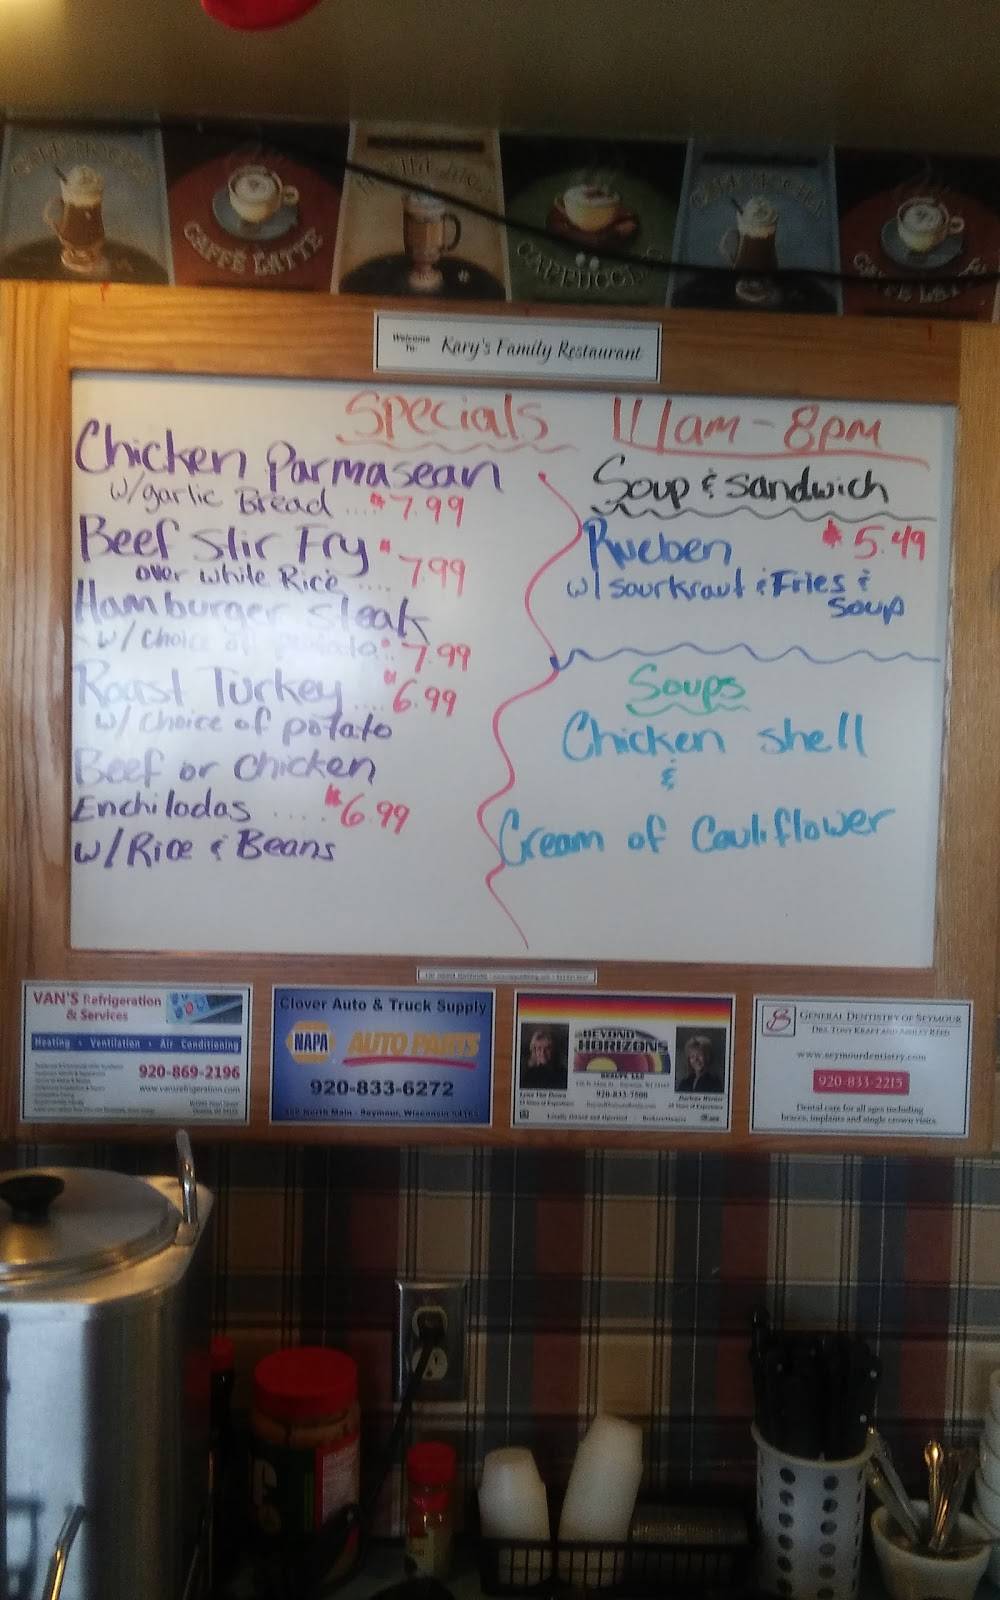 CAFFÉ LATTE
CAPPUCCINO
Welcome To:
Kary's Family Restaurant
Specials 11am-8pm
Chicken Parmasean
w/garlic Bread ....$7.99
Beef Stir Fry
over white Rice .... $7.99
Hamburger Steak
w/ choice of potato .. $7.99
Roast Turkey .... $6.99
w/ choice of potato
Beef or Chicken
Enchiladas ..... $6.99
w/ Rice & Beans
Soup & Sandwich
Rueben $5.49
w/ Sourkraut & Fries &
Soup
Soups
Chicken shell
&
Cream of Cauliflower
VAN'S Refrigeration
& Services
Heating • Ventilation • Air Conditioning
920-869-2196
www.vansrefrigeration.com
Clover Auto & Truck Supply
NAPA AUTO PARTS
920-833-6272
North Main - Seymour, Wisconsin
BEYOND
HORIZONS
REALTY, LLC
920-833-7500
GENERAL DENTISTRY OF SEYMOUR
DRS. TONY KRAFT AND ASHLEY REED
www.seymourdentistry.com
920-833-2215
Dental care for all ages including
braces, implants and single crown visits.